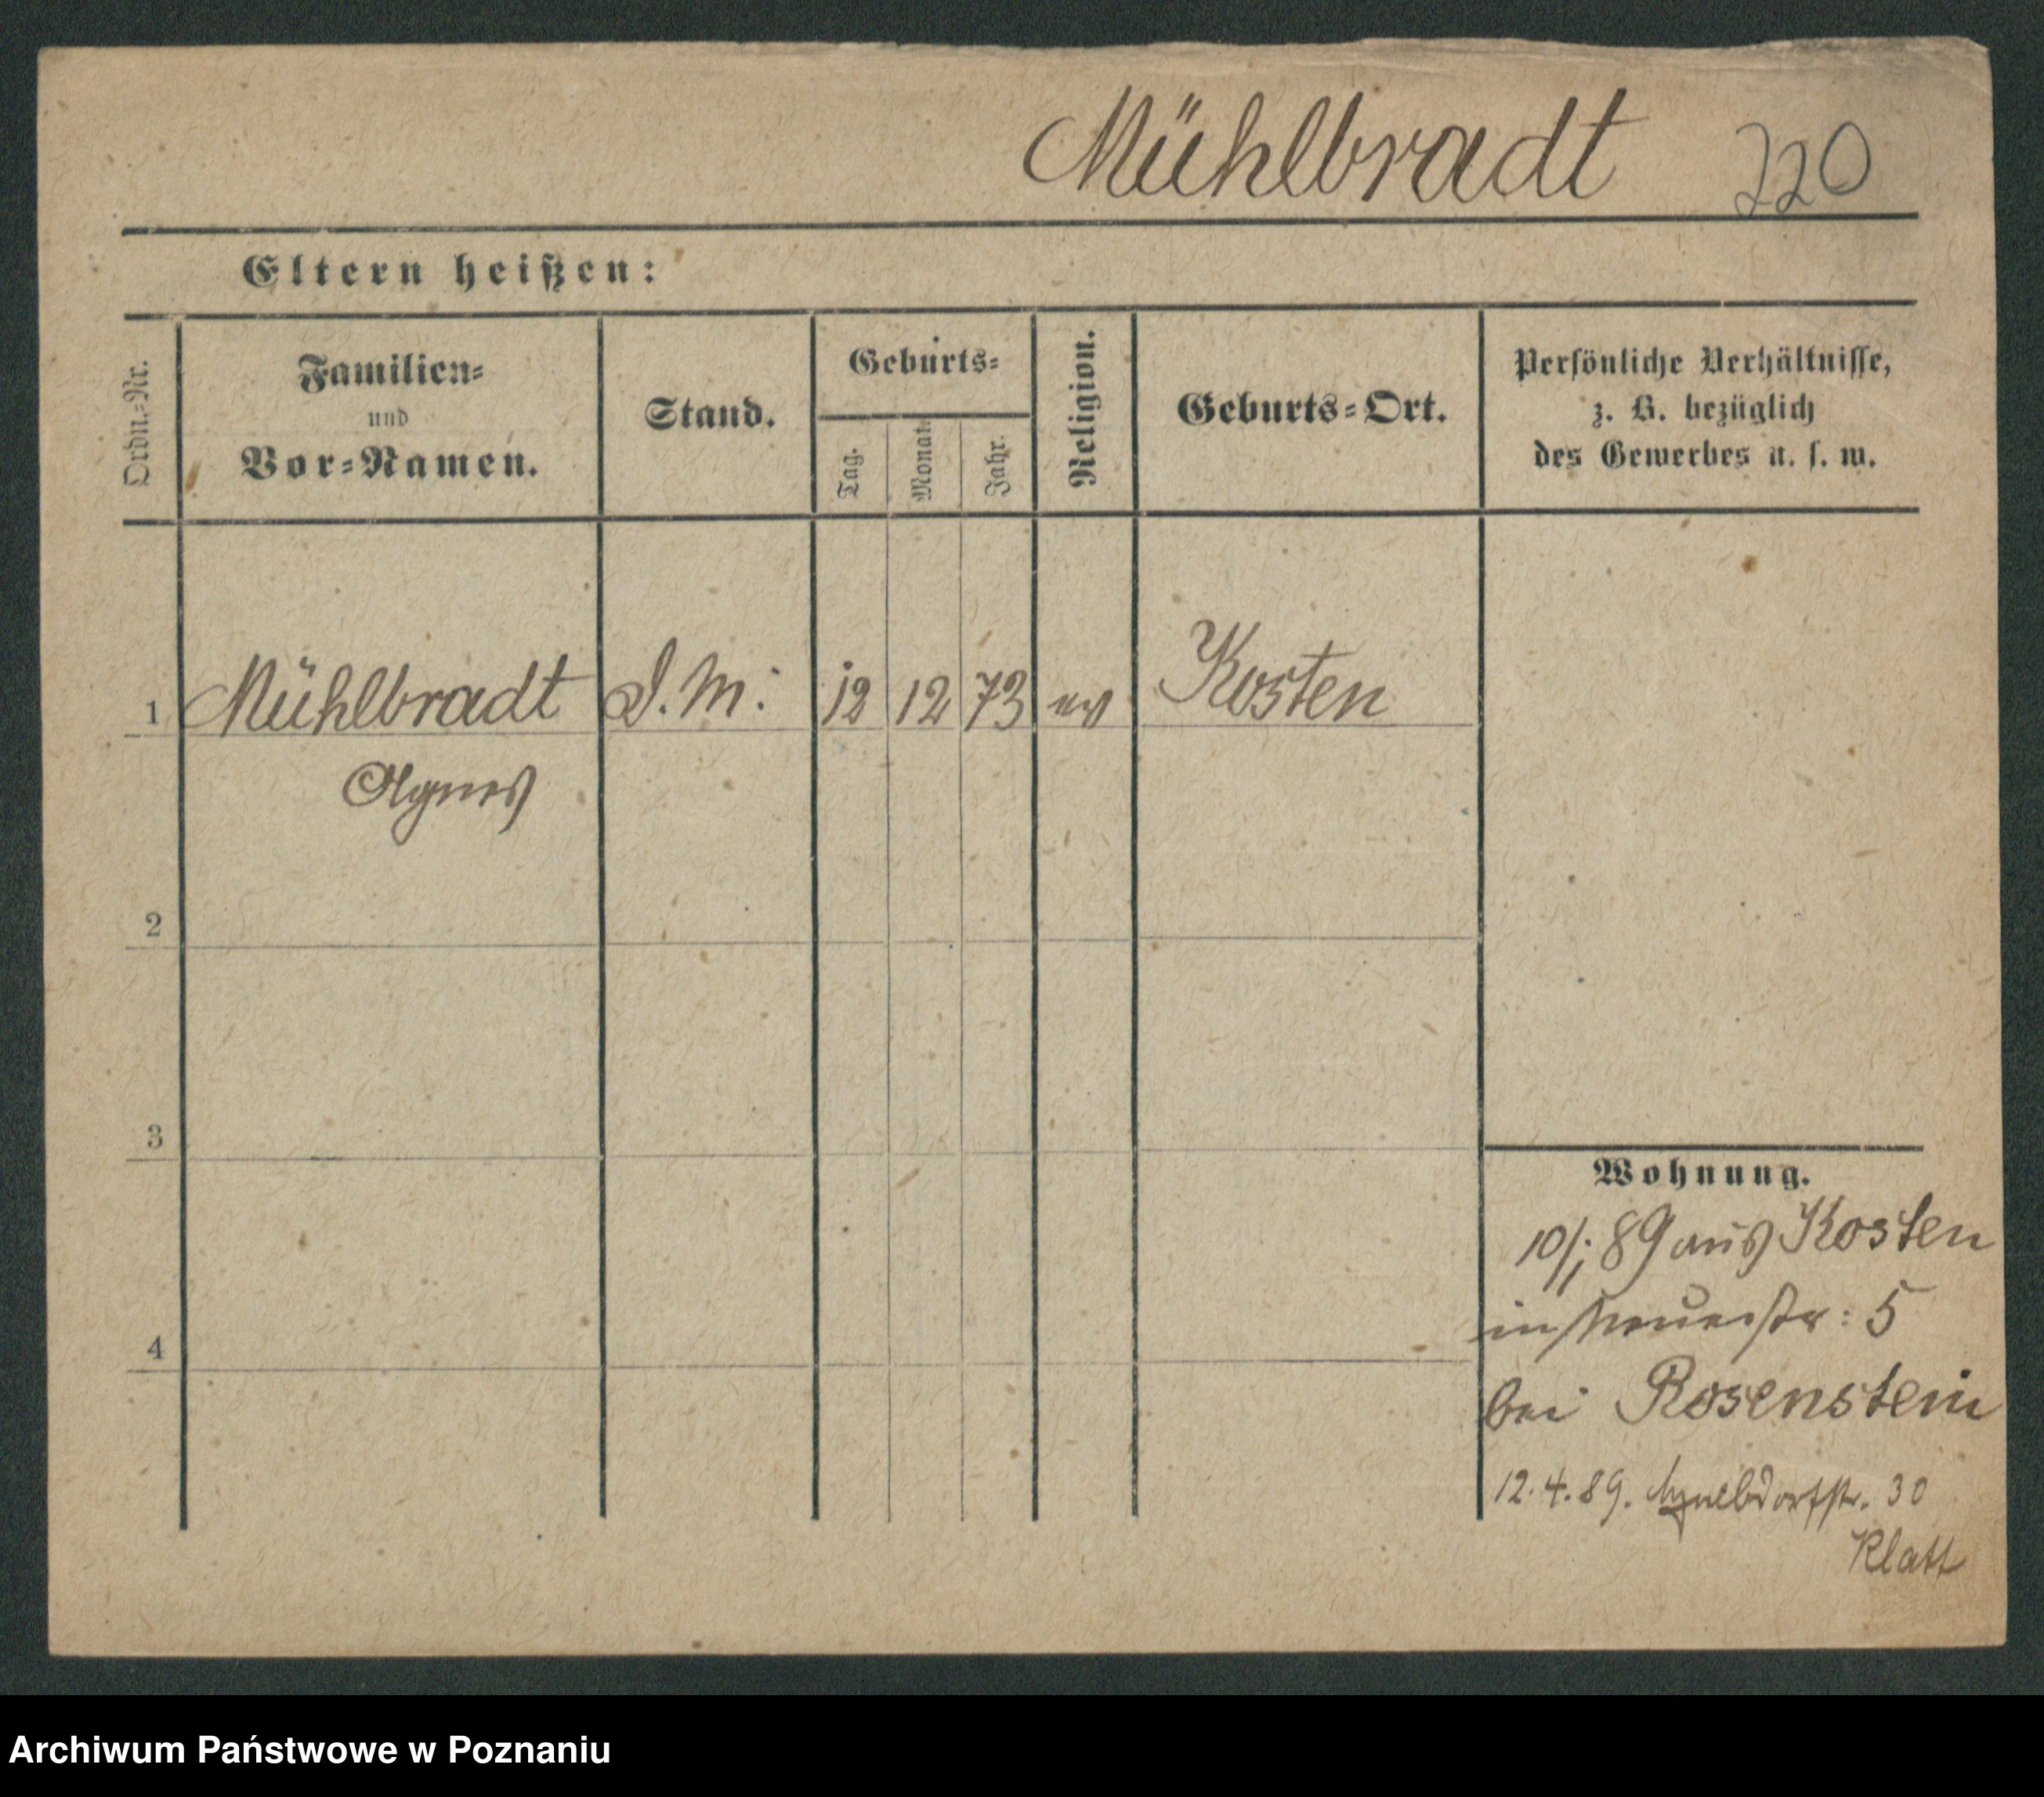 Mühlbradt 220
Eltern heißen:
Ordn.-Nr.
Familien-
und
Vor-Namen.
Stand.
Geburts-
Tag.
Monat.
Jahr.
Religion.
Geburts-Ort.
Persönliche Verhältnisse,
z. B. bezüglich
des Gewerbes u. s. w.
1 Mühlbradt D. M. 12 12 73 ev Kosten
Agnes
2
3
4
Wohnung.
10/1 89 aus Kosten
in Neuestr: 5
bei Rosenstein
12.4.89. 30
Klatt
Archiwum Państwowe w Poznaniu